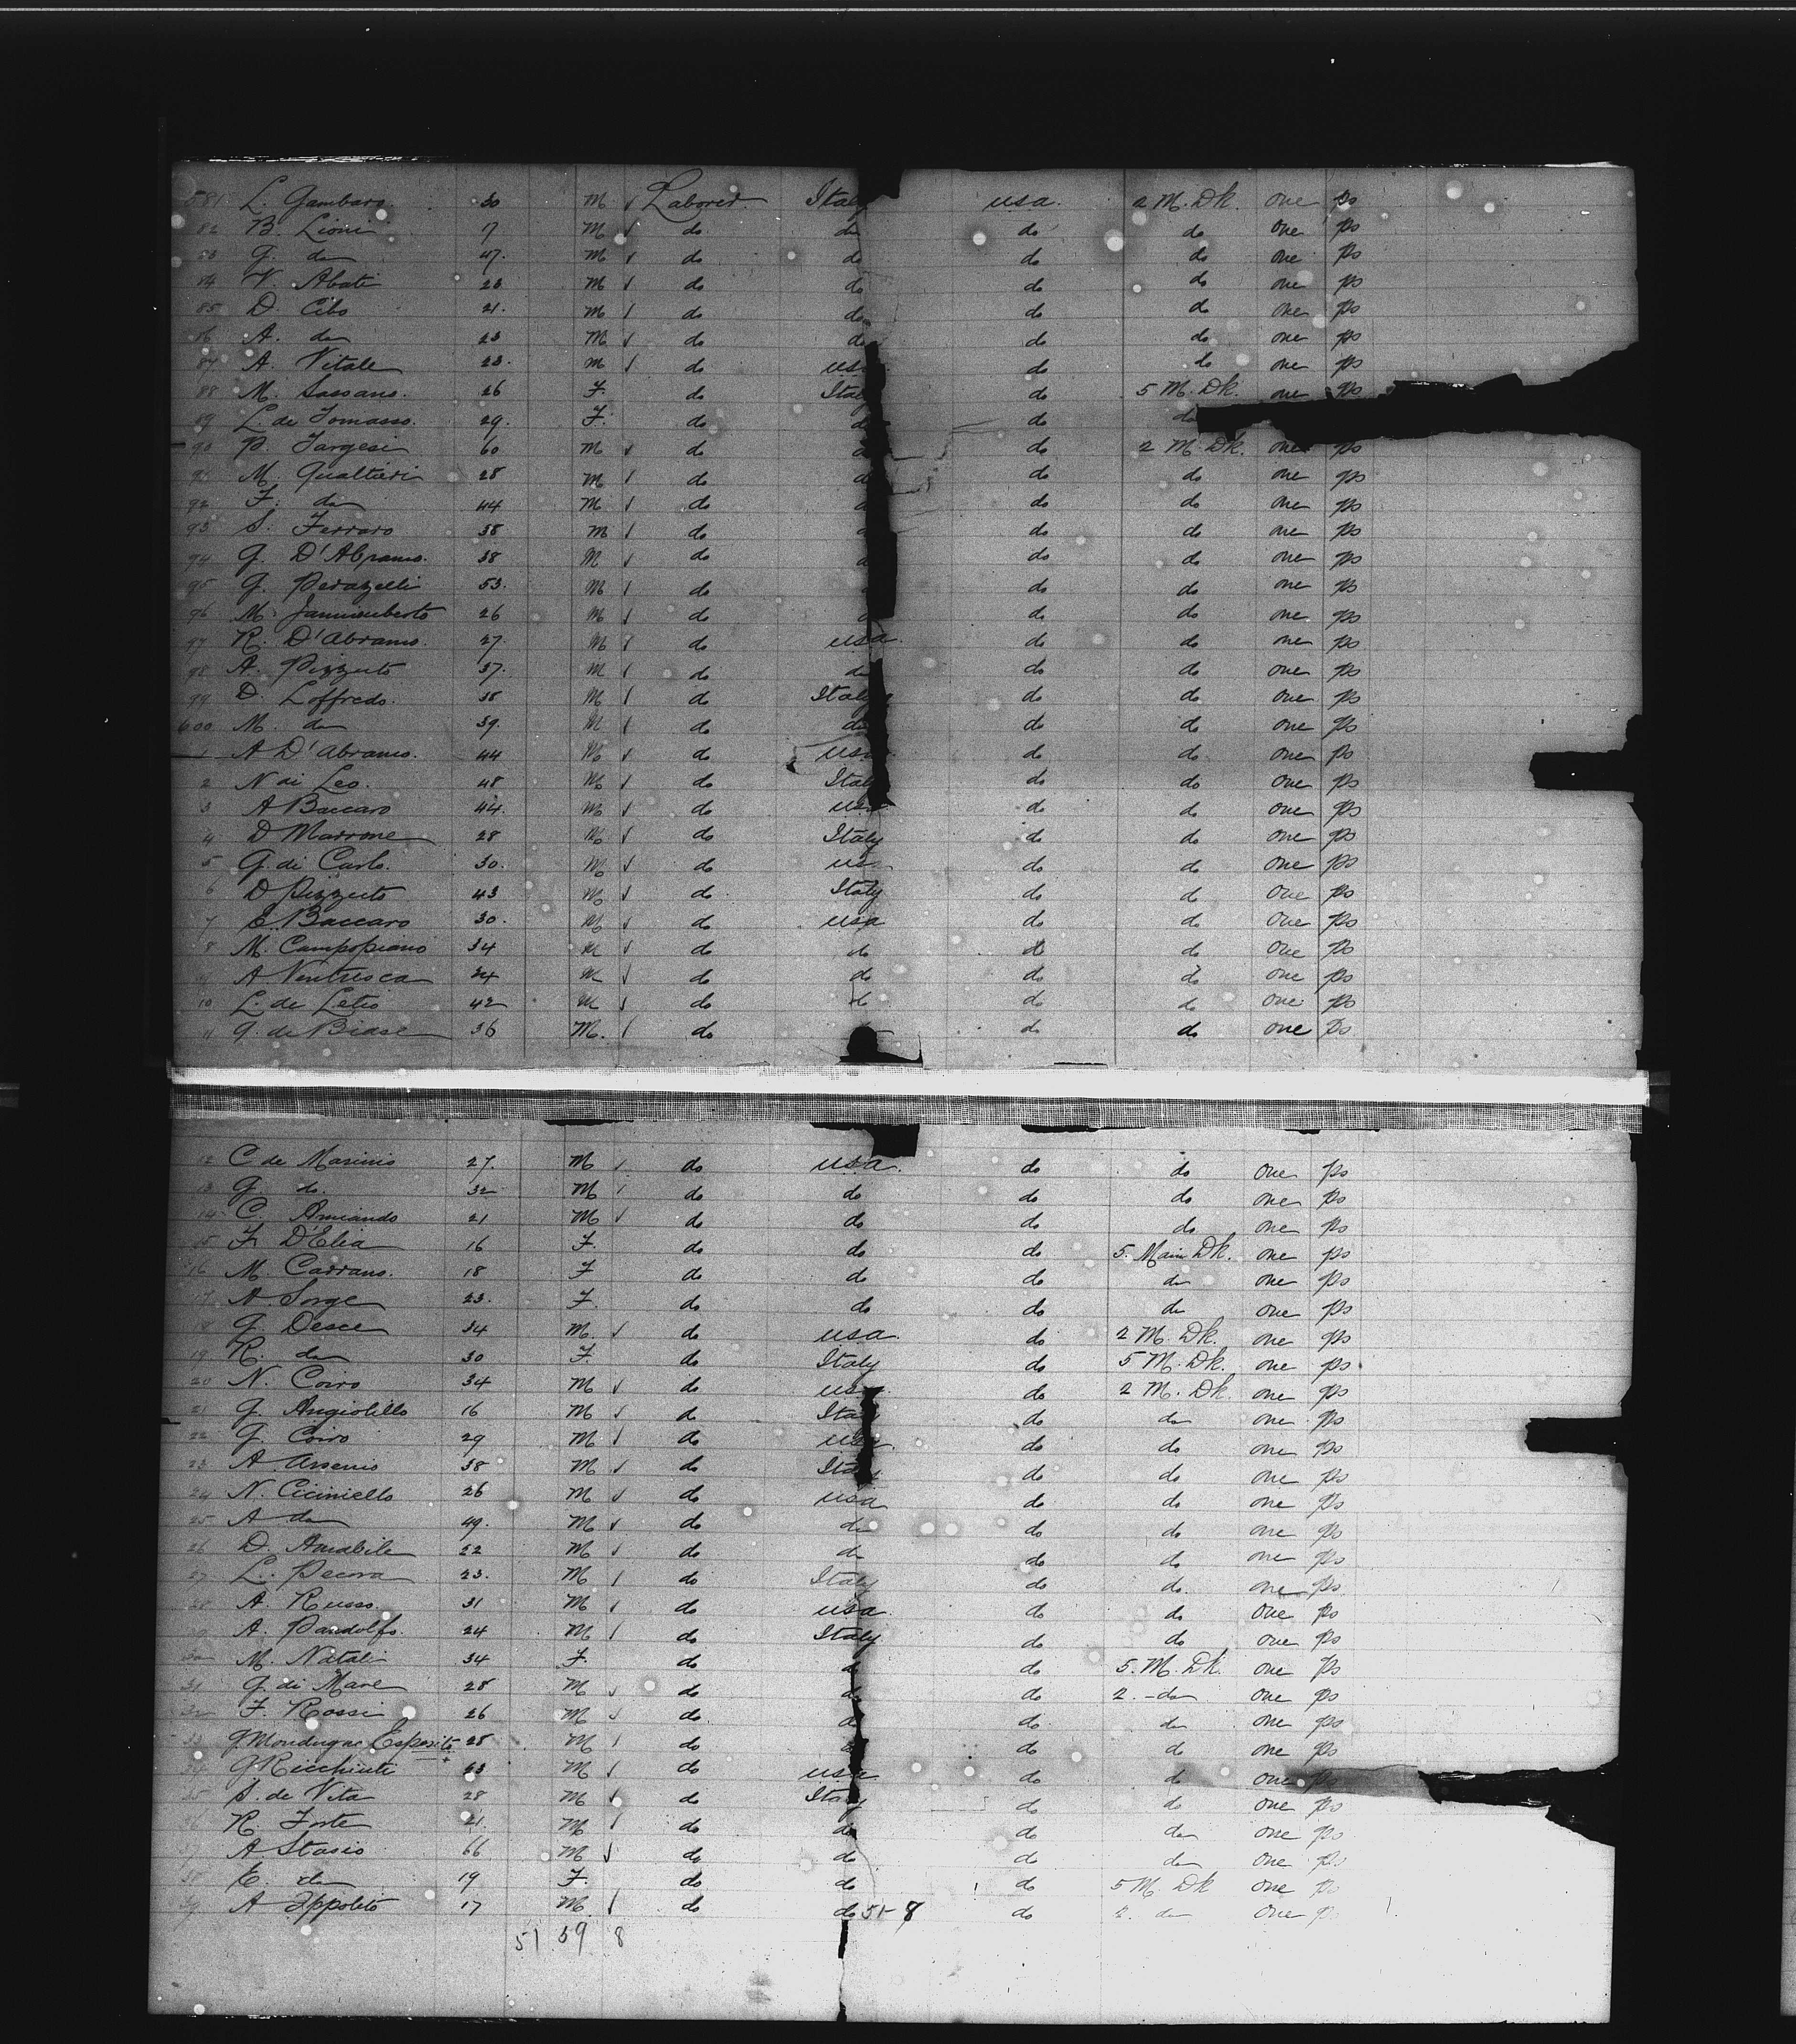 581 L. Gambaro. 30 M Laborer Italy usa. 2 M. Dk. one ps
82 B. Lioni 17 M do do do do one ps
83 G. do 47. M do do do do one ps
84 V. Abati 23 M do do do do one ps
85 D. Cibo 21. M do do do do one ps
86 A. do 23 M do do do do one ps
87 A. Vitale 23. M do usa do do one ps
88 M. Sassano. 26 F. do Italy do 5 M. Dk. one ps
89 L. de Tomasso. 29. F. do do do do
90 P. Targesi 60 M do do 2 M. Dk. one ps
91 M. Qualtieri 28 M do do do one ps
92 F. do 44 M do do do one ps
93 S. Ferraro 38 M do do do one ps
94 G. D'Abramo. 38 M do do do one ps
95 G. Perazzelli 53. M do do do one ps
96 M. 26 M do do do one ps
97 R. D'Abramo. 27. M do usa. do do one ps
98 A. Pizzuto 37. M do do do do one ps
99 D. Loffredo. 38 M do Italy do do one ps
600 M. do 39 M do do do do one ps
1 A D'Abramo. 44 M do usa do do one ps
2 N di Leo. 48 M do Italy do do one ps
3 A Baccaro 44. M do usa do do one ps
4 D Marrone 28 M do Italy do do one ps
5 G. di Carlo. 30. M do usa do do one ps
6 D Pizzuto 43 M do. Italy do do one ps
7 E. Baccaro 30. M do usa do do one ps
8 M. Campopiano 34 M do do do do one ps
9 A Ventresca 24 M do do do do one ps
10 L. de Letis 42 M do do do do one ps
11 G. de Biase 36 M. do do do one ps.
12 C de Marinis 27. M do usa. do do one ps
13 G. do. 32 M do do do do one ps
14 C. Amiando 21 M do do do do one ps
15 F. D'Elia 16 F. do do do 5. Main Dk. one ps
16 M. Carrano. 18 F do do do do one ps
17 A. Sorge 23. F. do do do do one ps
18 G. Desce 34 M. do usa. do 2 M. Dk. one ps
19 R. do 30 F. do Italy do 5 M. Dk. one ps
20 N. Coiro 34 M do usa do 2 M. Dk. one ps
21 G. Angiolillo 16 M do Italy do do one ps
22 G. Coiro 29 M do usa do do one ps
23 A. Arsenio 38 M do Italy do do one ps
24 N. Ciciniello 26 M do usa do do one ps
25 A do 49. M do do do do one ps
26 D. Amabile 22 M do do do do one ps
27 L. Pecora 23. M do Italy do do. one ps
28 A. Russo. 31 M do usa do do one ps
29 A. Pandolfo. 24 M do Italy do do one ps
30 M. Natale 34 F. do do do 5. M. Dk. one ps
31 G. di Mare 28 M do do do 2. - do one ps
32 F. Rossi 26 M do. do do. do one ps
33 G Mondugne Esposito 28 M do do do one ps
34 G Ricchiuti 23 M do usa do do one ps
35 S. de Vita 28 M do Italy do do one ps
36 R. Forte 21 M do do do do one ps
37 A Stasio 66 M do do do do one ps
38 E. do 19 F. do do do 5 M. Dk one ps
39 A Ippolito 17 M. do do 51-8 do 2. do one ps
51 59 8